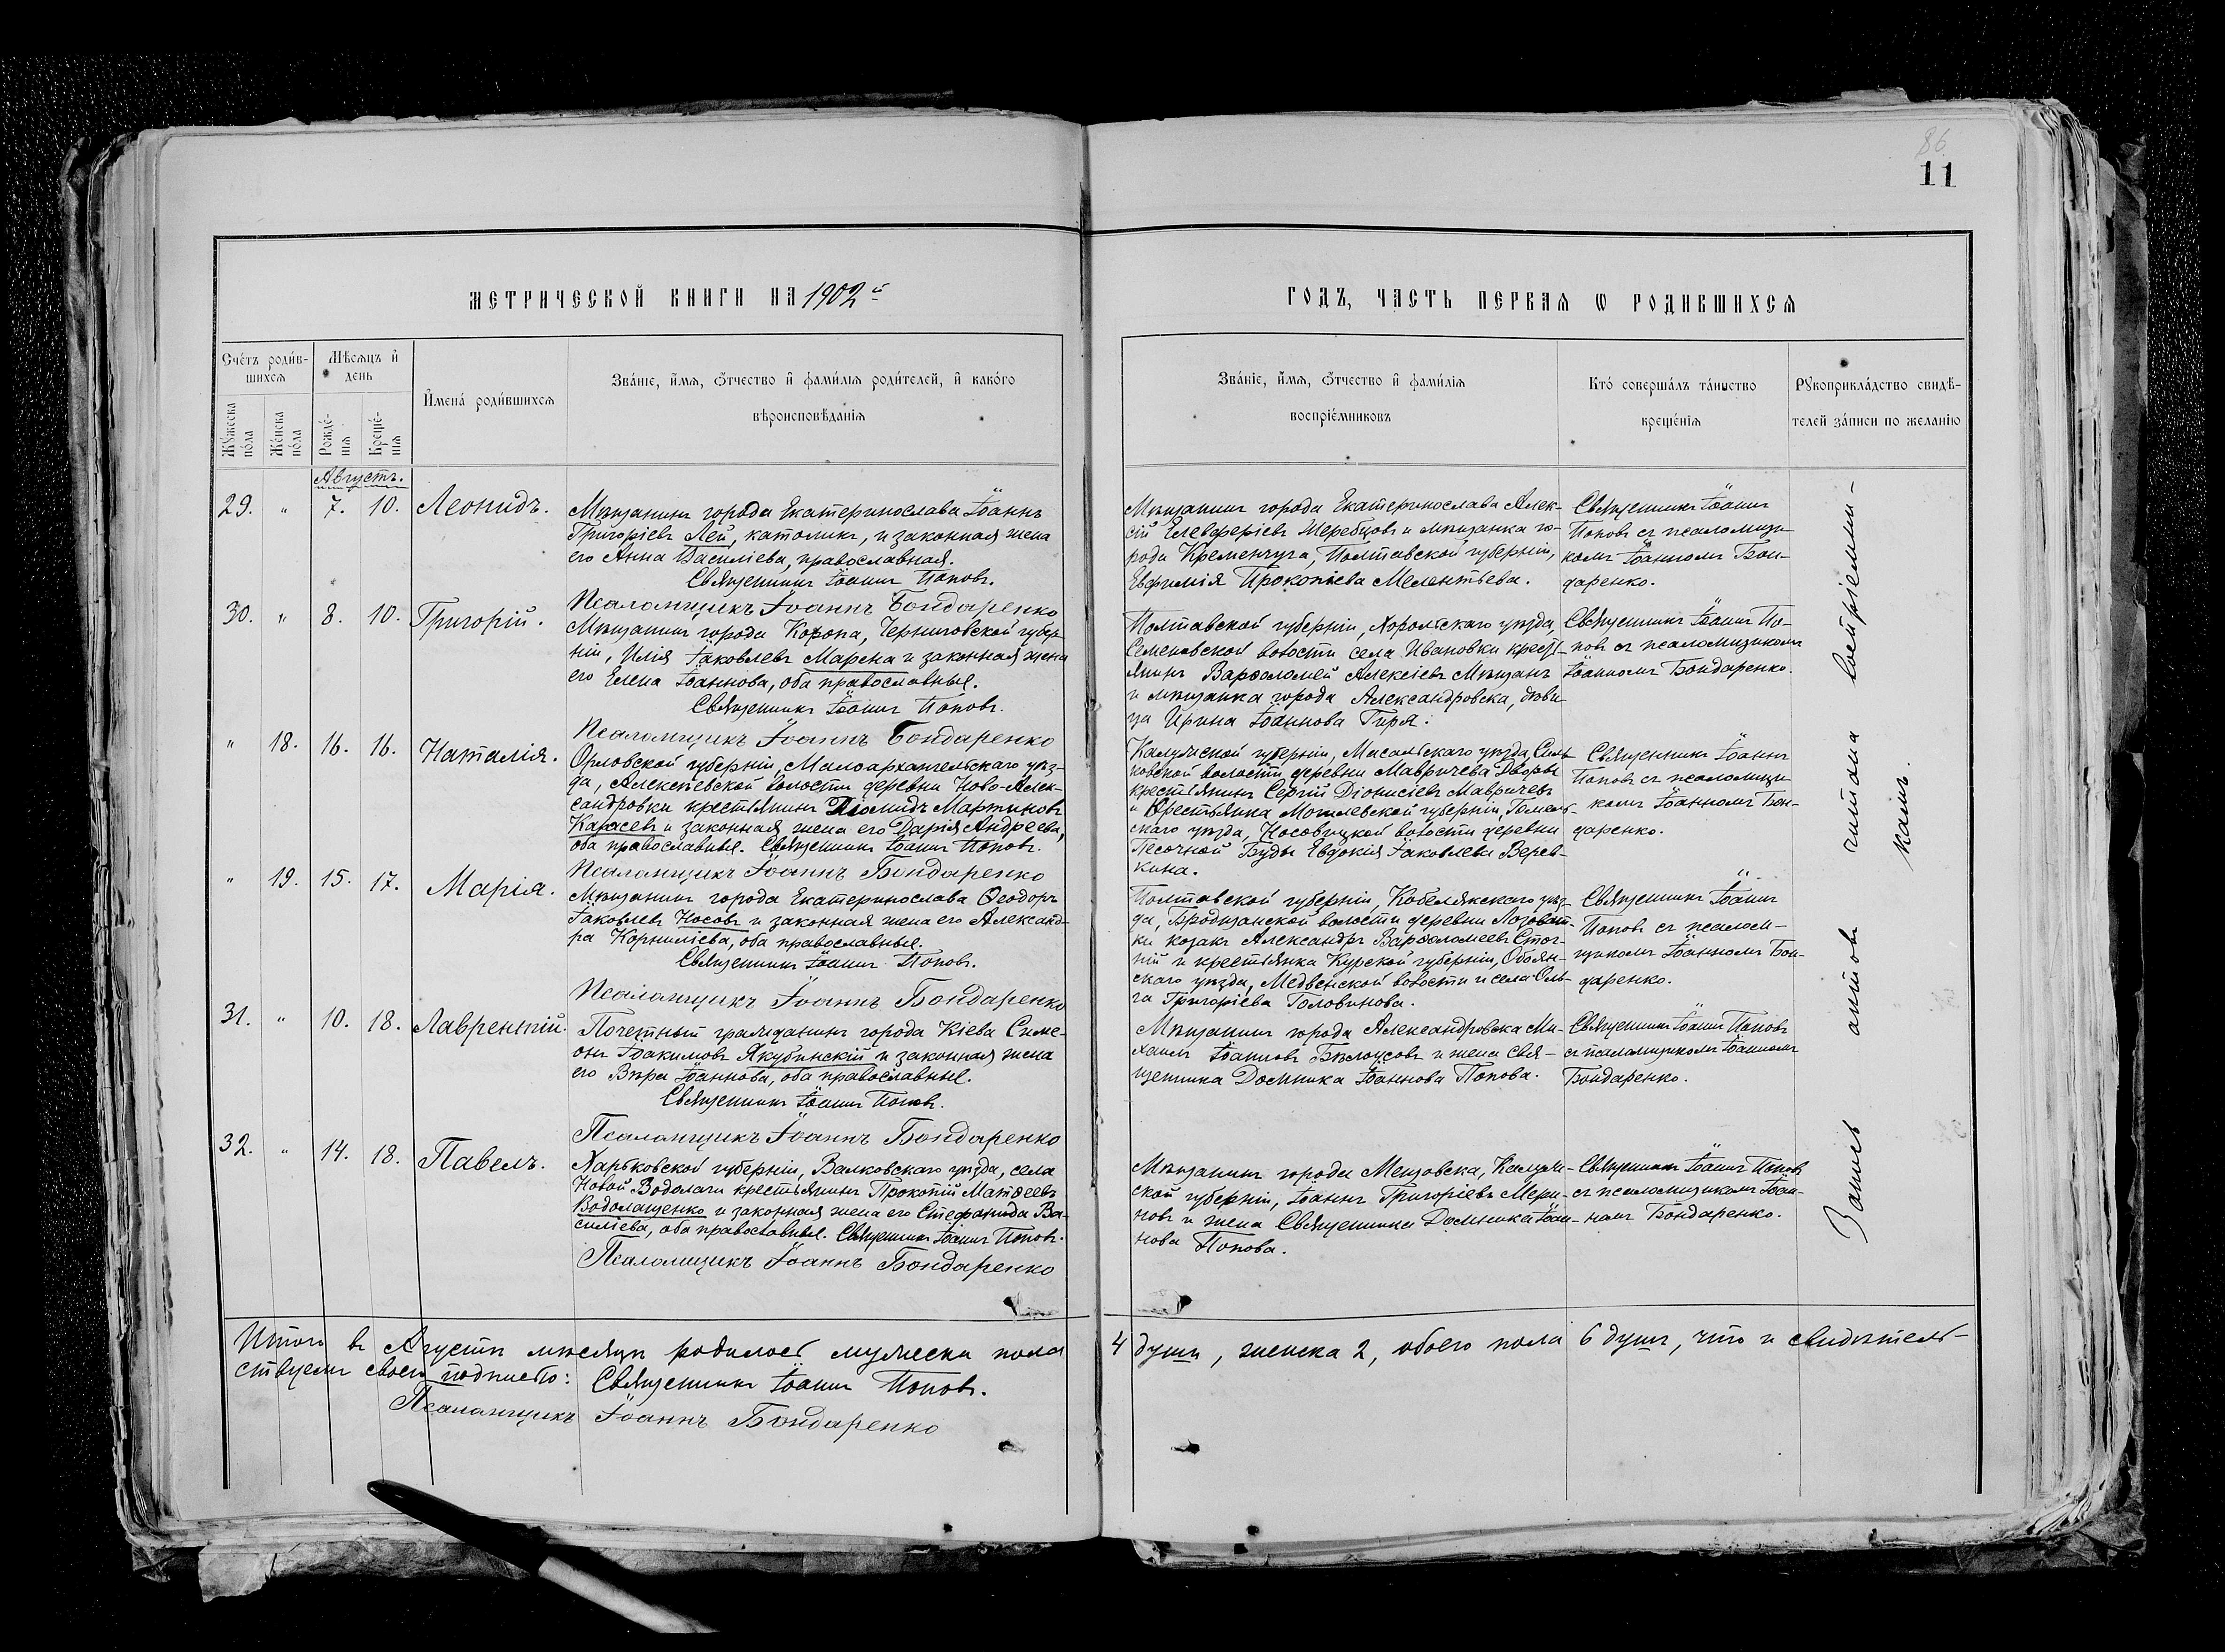 86
11
МЕТРИЧЕСКОЙ КНИГИ НА 1902й
ГОДЪ, ЧАСТЬ ПЕРВАЯ Ѡ РОДИВШИХСЯ
Счетъ родив-
шихся
Мѣсяцъ и
день
Мужеска
пола
Женска
пола
Рожде-
нія
Креще-
нія
Имена родившихся
Званіе, имя, отчество и фамилія родителей, и какого
вѣроисповѣданія
Званіе, имя, отчество и фамилія
воспріемниковъ
Кто совершалъ таинство
крещенія
Рукоприкладство свидѣ-
телей записи по желанію
Августъ.
29. " 7. 10. Леонидъ.
Мѣщанинъ города Екатеринослава Іоаннъ
Григоріевъ Лей, католикъ, и законная жена
его Анна Василіева, православная.
Священникъ Іоаннъ Поповъ.
Псаломщикъ Іоаннъ Бондаренко
Мѣщанинъ города Екатеринослава Алек-
сій Елевферіевъ Жеребцовъ и мѣщанка го-
рода Кременчуга, Полтавской губерніи,
Евфимія Прокопіева Мелентьева.
Священникъ Іоаннъ
Поповъ съ псаломщи-
комъ Іоанномъ Бон-
даренко.
30. " 8. 10. Григорій.
Мѣщанинъ города Коропа, Черниговской губер-
ніи, Илія Іаковлевъ Марена и законная жена
его Елена Іоаннова, оба православные.
Священникъ Іоаннъ Поповъ.
Псаломщикъ Іоаннъ Бондаренко
Полтавской губерніи, Хорольскаго уѣзда,
Семеновской волости села Ивановки кресть-
янинъ Варѳоломей Алексіевъ Мѣщанъ
и мѣщанка города Александровска, дѣви-
ца Ирина Іоаннова Гиря.
Священникъ Іоаннъ По-
повъ съ псаломщикомъ
Іоанномъ Бондаренко.
" 18. 16. 16. Наталія.
Орловской губерніи, Малоархангельскаго уѣз-
да, Алексѣевской волости деревни Ново-Алек-
сандровки крестьянинъ Діомидъ Мартиновъ
Карасевъ и законная жена его Дарія Андреева,
оба православные. Священникъ Іоаннъ Поповъ.
Псаломщикъ Іоаннъ Бондаренко
Калужской губерніи, Масальскаго уѣзда,
волости деревни Мавричева Дворы
крестьянинъ Сергій Діонисіевъ Мавричевъ
и Крестьянка Могилевской губерніи, Гомель-
скаго уѣзда, Носовицкой волости деревни
Песочной Буды Евдокія Іаковлева Верев-
кина.
Священникъ Іоаннъ
Поповъ съ псаломщи-
комъ Іоанномъ Бон-
даренко.
" 19. 15. 17. Марія.
Мѣщанинъ города Екатеринослава Ѳеодоръ
Іаковлевъ Носовъ и законная жена его Александ-
ра Корниліева, оба православные.
Священникъ Іоаннъ Поповъ.
Псаломщикъ Іоаннъ Бондаренко
Полтавской губерніи, Кобелякскаго уѣз-
да, Бродщанской волости деревни Лозоват-
ки козакъ Александръ Варѳоломеевъ Стог-
ній и крестьянка Курской губерніи, Обоян-
скаго уѣзда, Медвенской волости и села Оль-
га Григоріева Головинова.
Священникъ Іоаннъ
Поповъ съ псалом-
щикомъ Іоанномъ Бон-
даренко.
31. " 10. 18. Лаврентій.
Почетный гражданинъ города Кіева Симе-
онъ Іоакимовъ Якубинскій и законная жена
его Вѣра Іоаннова, оба православные.
Священникъ Іоаннъ Поповъ.
Псаломщикъ Іоаннъ Бондаренко
Мѣщанинъ города Александровска Ми-
хаилъ Іоанновъ Бѣлоусовъ и жена Свя-
щенника Домника Іоаннова Попова.
Священникъ Іоаннъ Поповъ
съ псаломщикомъ Іоанномъ
Бондаренко.
32. " 14. 18. Павелъ.
Харьковской губерніи, Валковскаго уѣзда, села
Новой Водолаги крестьянинъ Прокопій Матѳеевъ
Водолащенко и законная жена его Стефанида Ва-
силіева, оба православные. Священникъ Іоаннъ Поповъ.
Псаломщикъ Іоаннъ Бондаренко
Мѣщанинъ города Мещовска, Калуж-
ской губерніи, Іоаннъ Григоріевъ Мери-
новъ и жена Священника Домника Іоан-
нова Попова.
Священникъ Іоаннъ Поповъ
съ псаломщикомъ Іоан-
номъ Бондаренко.
Запись актовъ читана воспріемни-
камъ.
Итого въ Августѣ мѣсяцѣ родилось мужеска пола 4 души, женска 2, обоего пола 6 душъ, что и свидѣтель-
ствуемъ своею подписью: Священникъ Іоаннъ Поповъ.
Псаломщикъ Іоаннъ Бондаренко